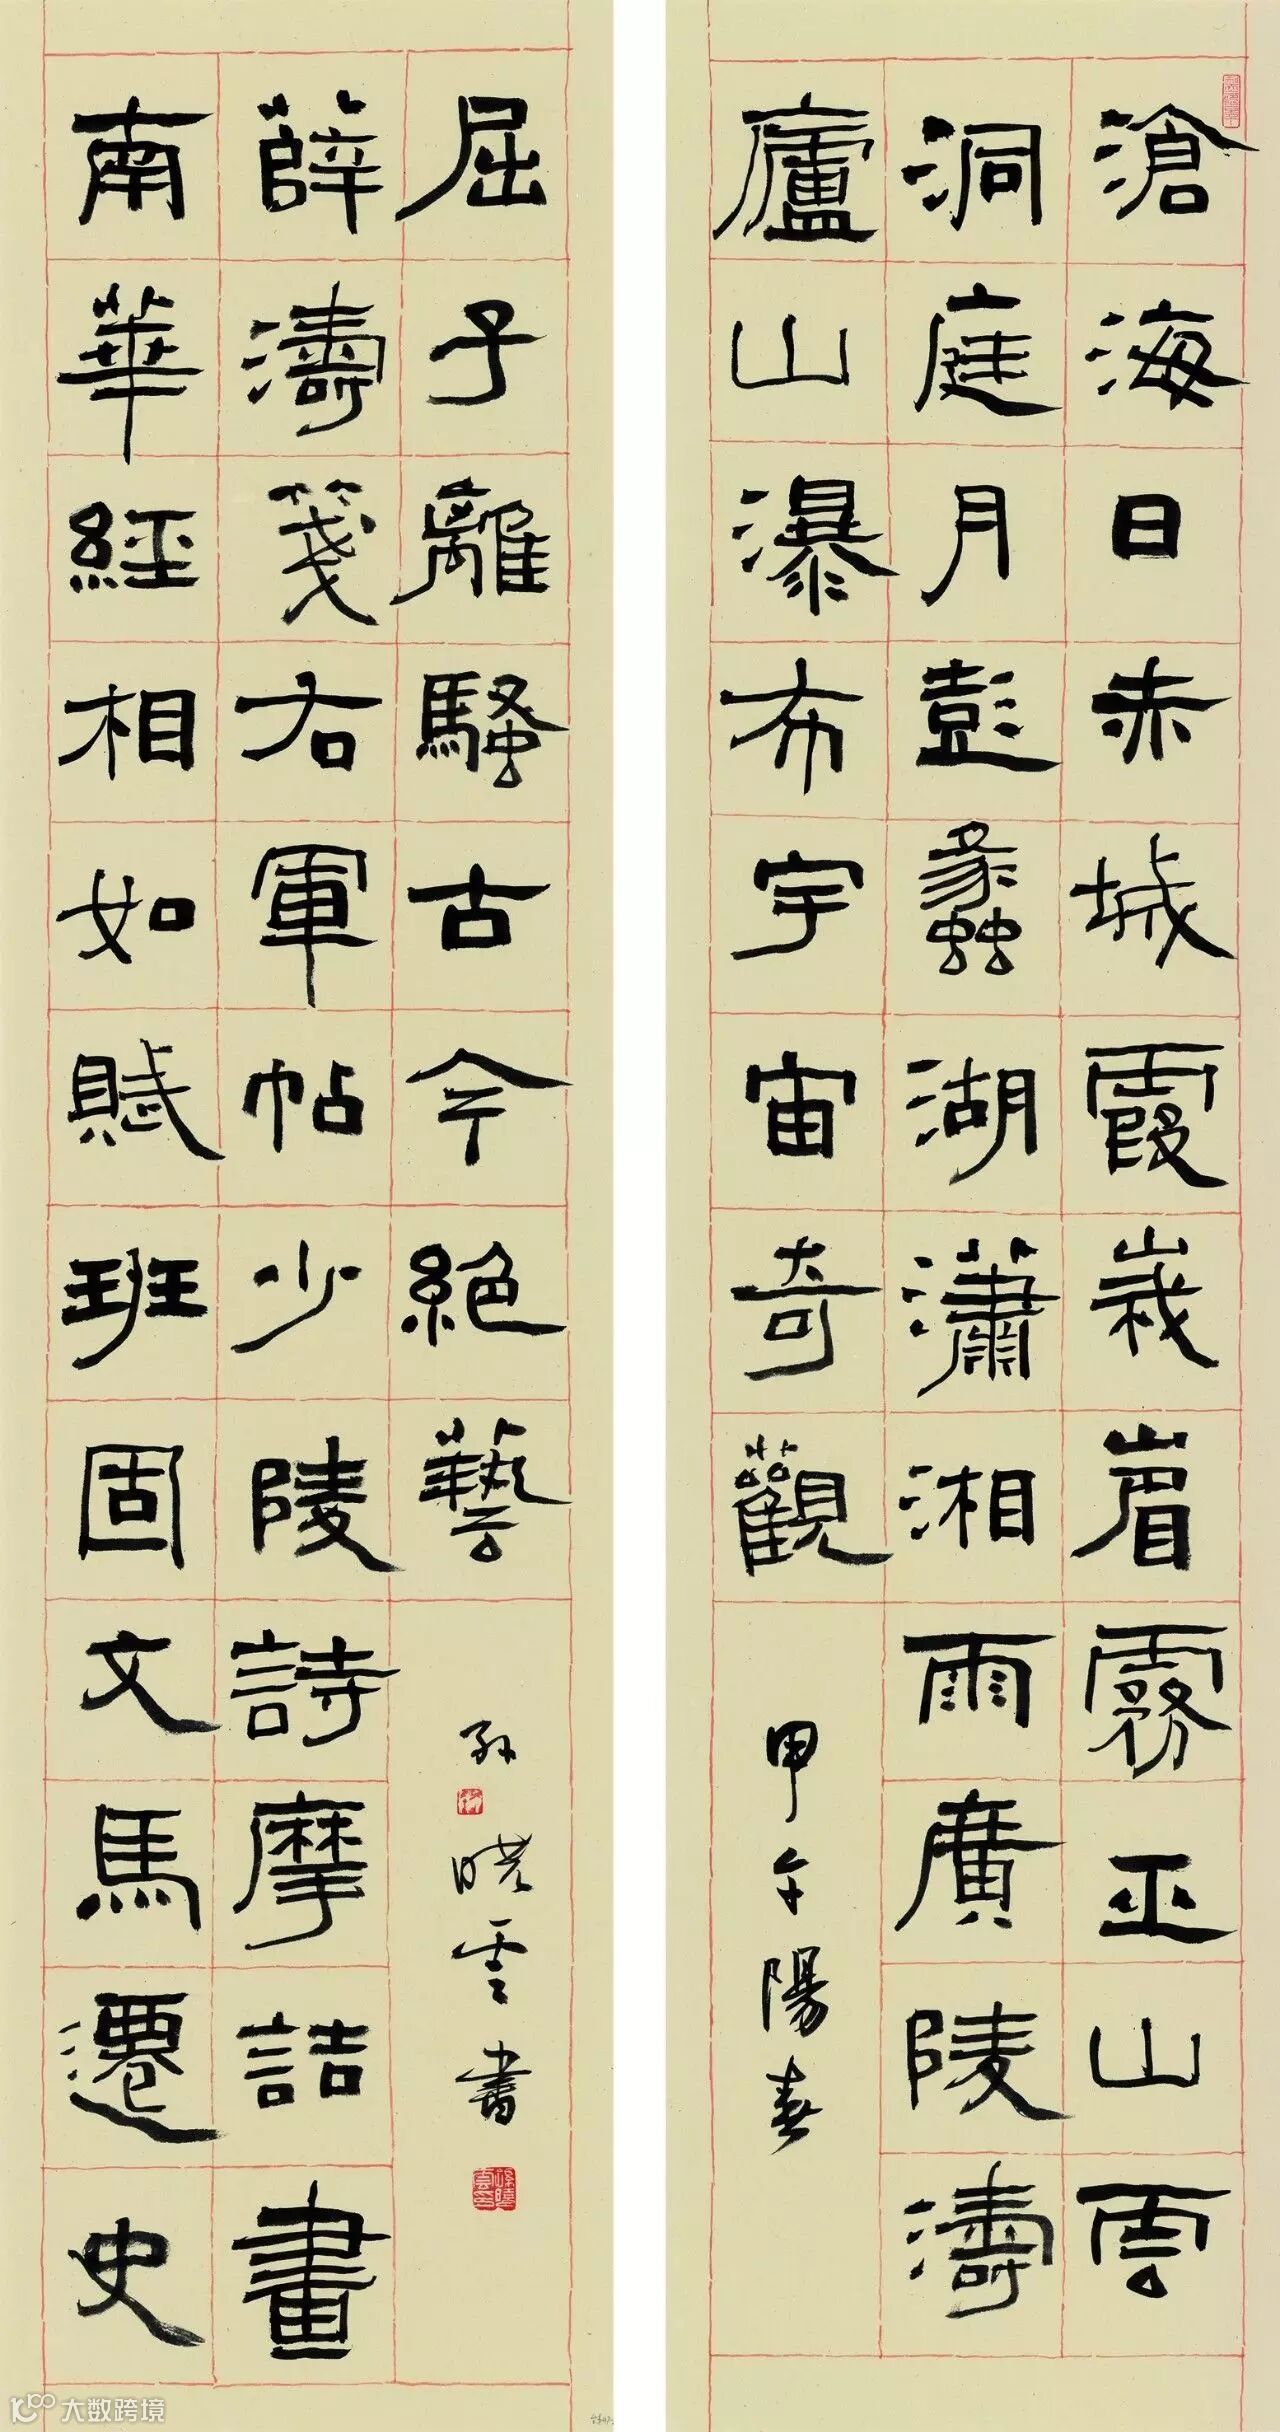 滄海日赤城霞峩嵋霧巫山雲
洞庭月彭蠡湖瀟湘雨廣陵濤
廬山瀑布宇宙奇觀
甲午陽春
南華經相如賦班固文馬遷史
薛濤箋右軍帖少陵詩摩詰畫
屈子離騷古今絕藝
孫曉雲書
大数跨境